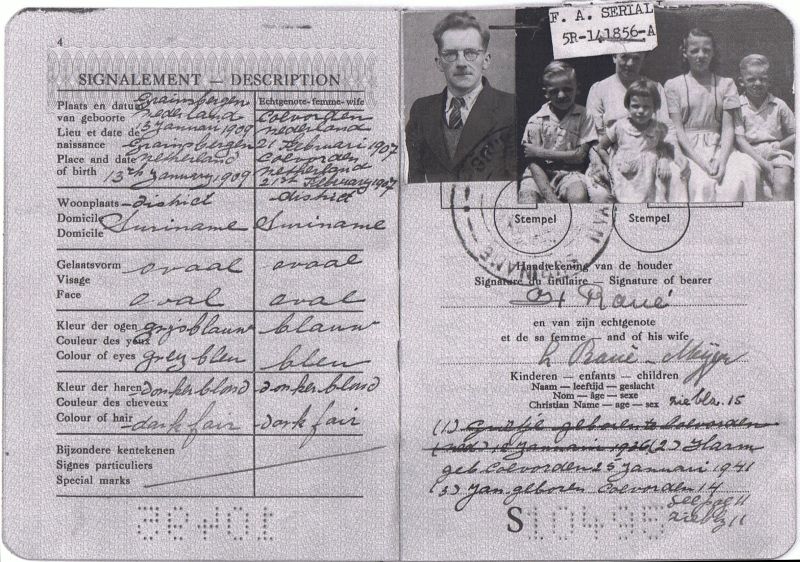 4
SIGNALEMENT — DESCRIPTION
Plaats en datum
van geboorte
Lieu et date de
naissance
Place and date
of birth
Gramsbergen
Nederland
13 Januari 1909
Gramsbergen
Netherland
13th January 1909
Echtgenote-femme-wife
Coevorden
Nederland
21 Februari 1907
Coevorden
Netherland
21st February 1907
Woonplaats
Domicile
Domicile
district
Suriname
district
Suriname
Gelaatsvorm
Visage
Face
ovaal
oval
ovaal
oval
Kleur der ogen
Couleur des yeux
Colour of eyes
grijsblauw
grey bleu
blauw
bleu
Kleur der haren
Couleur des cheveux
Colour of hair
donker blond
dark fair
donker blond
dark fair
Bijzondere kentekenen
Signes particuliers
Special marks
10495
F. A. SERIAL
5R-141856-A
Stempel
Stempel
Handtekening van de houder
Signature du titulaire — Signature of bearer
en van zijn echtgenote
et de sa femme — and of his wife
Kinderen — enfants — children
Naam — leeftijd — geslacht
Nom — âge — sexe
Christian Name — age — sex
zie blz. 15
geboren te Coevorden
10 Januari 1936 (2) Harm
geb Coevorden 25 Januari 1941
(3) Jan geboren Coevorden 14
zie blz 11
S 10495